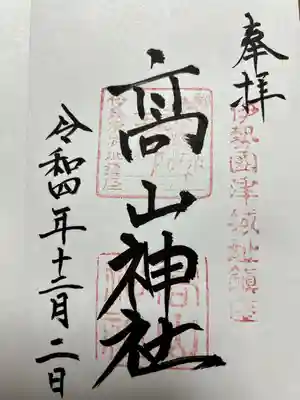 奉拝
伊勢國津城址鎮座
髙山神社
令和四年十二月二日